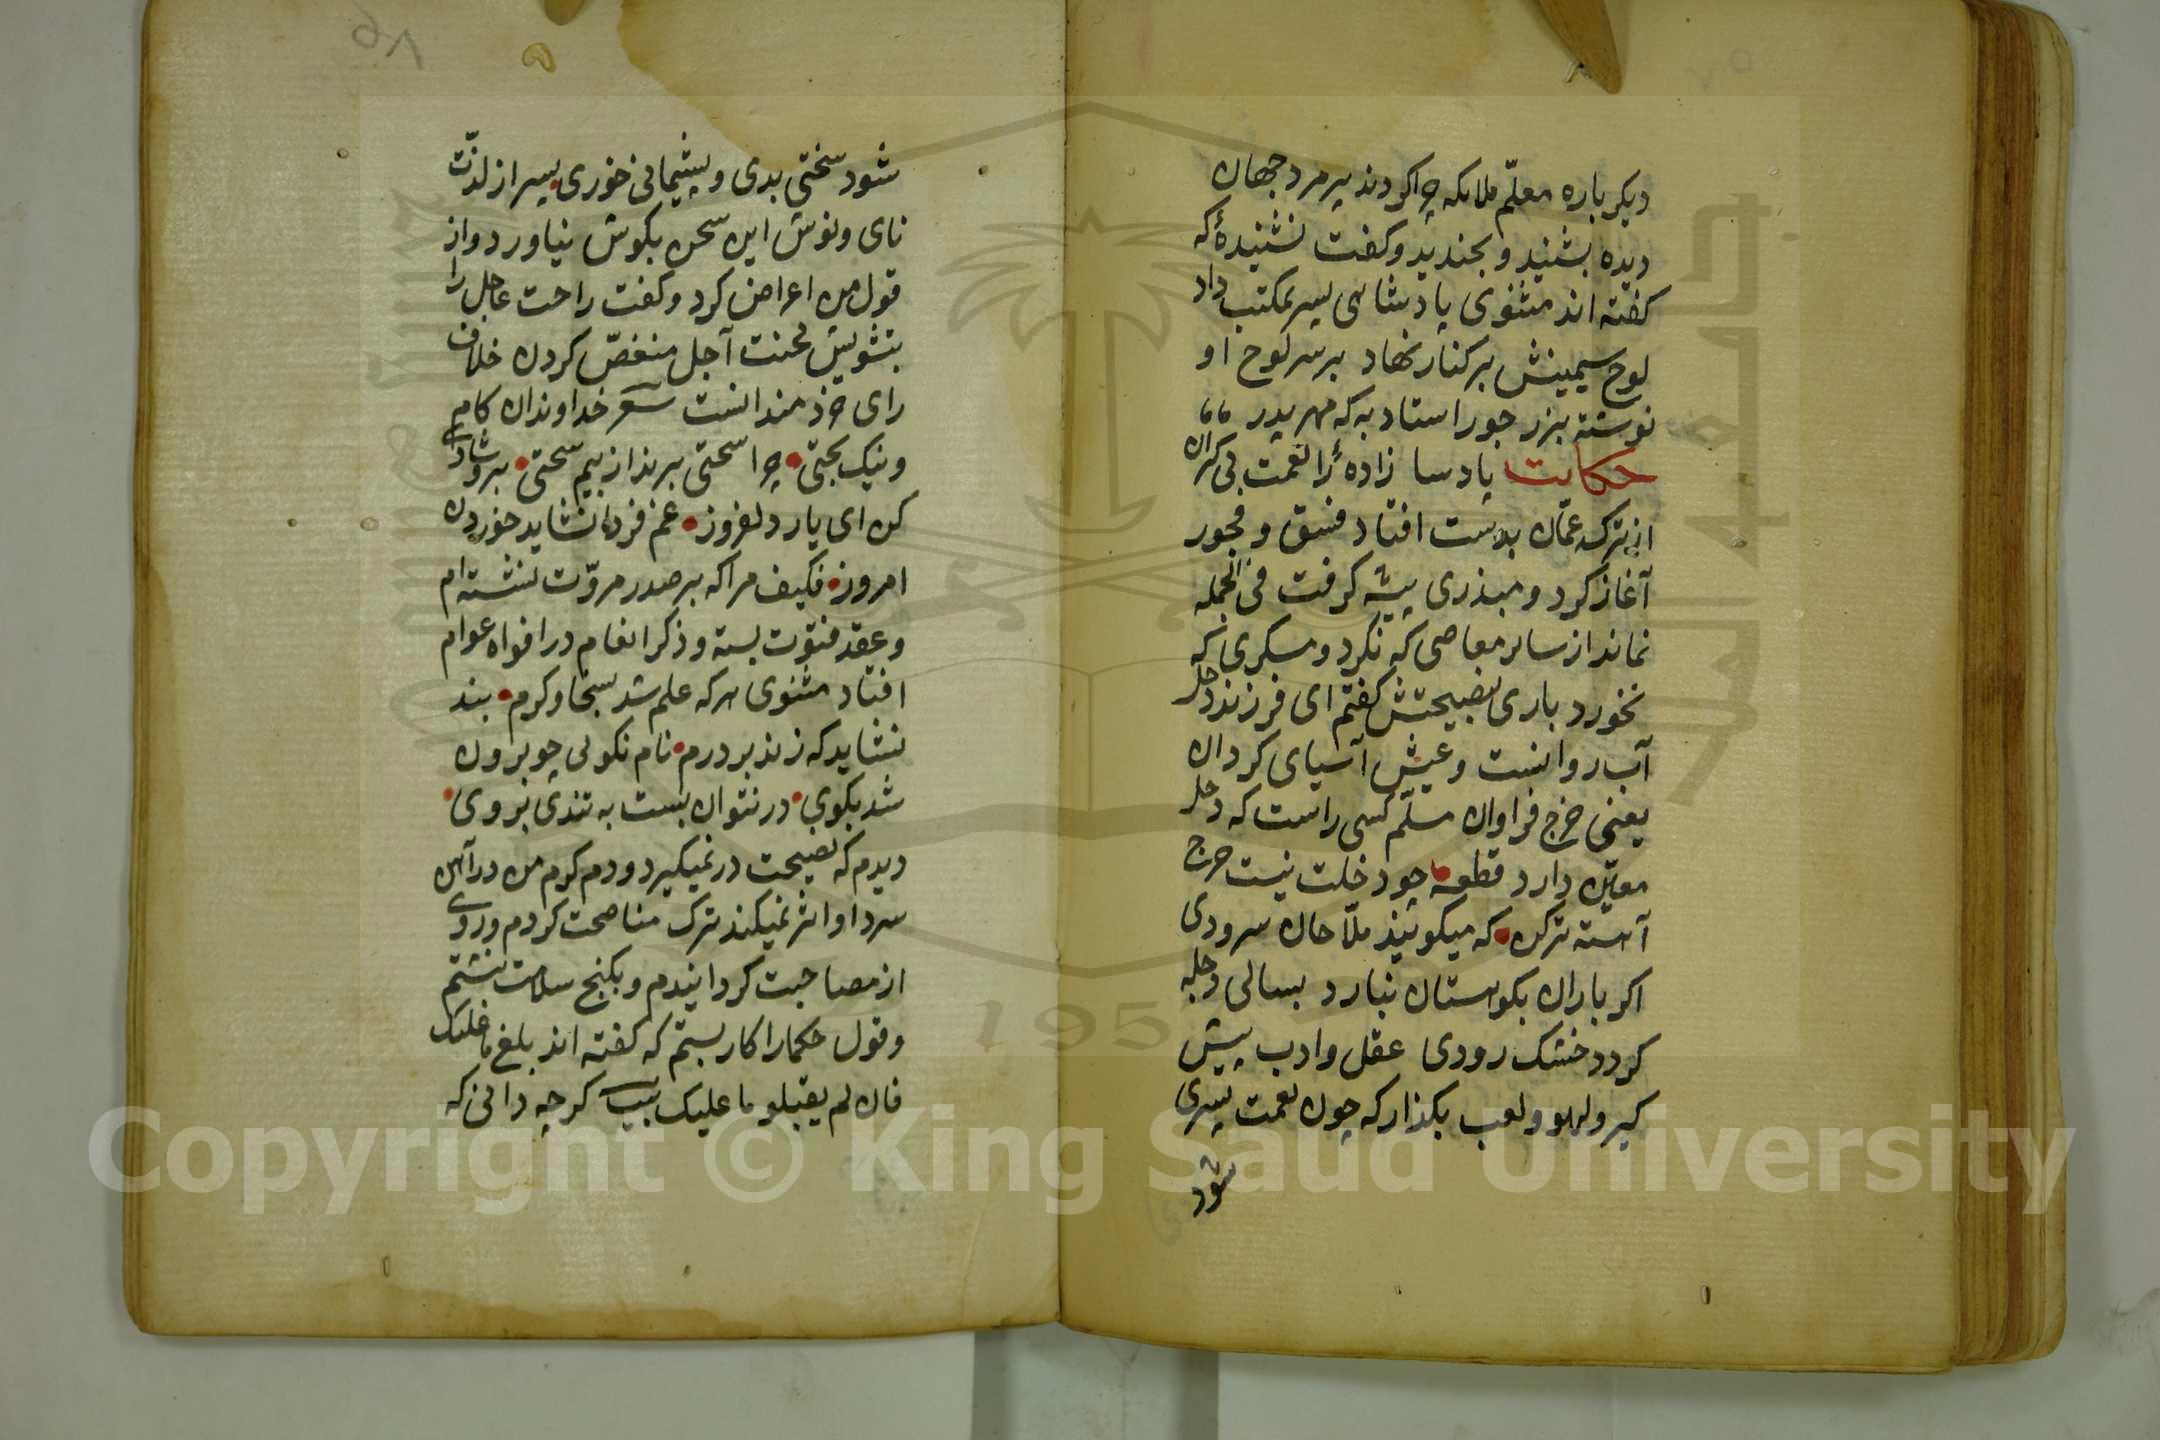 دیکر باره معلّم ملایکه چرا کردند پیر مرد جهان
دیده بشنید و بخندید و کفت نشنیدهٔ که
کفته اند مثنوی پادشاهی پسر بمکتب داد
لوح سیمینش بر کنار نهاد بر سر لوح او
نوشته بزر جور استاد به که مهر پدر
حکایت پادسا زادهٔ را نعمت بی کران
از ترکه عمّان بدست افتاد فسق و فجور
آغاز کرد و مبذری پیشه کرفت فی الجمله
نماند از سایر معاصی که نکرد و مسکری که
نخورد باری بنصیحتش کفتم ای فرزند دخل
آب روانست و عیش آسیای کردان
یعنی خرج فراوان مسلّم کسی راست که دخل
معیّن دارد قطعه چو دخلت نیست خرج
آهسته ترکن که میکویند ملّاحان سرودی
اکر باران بکوهستان نبارد بسالی دجله
کردد خشک رودی عقل و ادب پیش
کیر و لهو و لعب بکذار که چون نعمت سپری
شود
شود سختی بدی و پشیمانی خوری پسر از لذّت
نای و نوش این سخن بکوش نیاورد و از
قول من اعراض کرد و کفت راحت عاجل را
بتشویش محنت آجل منغصّ کردن خلاف
رای خردمندانست شعر خداوندان کام
و نیک بختی چرا سختی برند از بیم سختی برو شادی
کن ای یار دلفروز غم فردا نشاید خوردن
امروز فکیف مرا که بر صدر مروّت نشسته ام
و عقد فتوّت بسته و ذکر انعام در افواه عوام
افتاد مثنوی هر که علم شد بسخا و کرم بند
نشاید که زند بر درم نام نکویی چو برون
شد بکوی در نتوان بست به تندی بروی
دیدم که نصیحت در نمیکیرد و دم کرم من در آهن
سرد او اثر نمیکند ترک مناصحت کردم و روی
از مصاحبت کردانیدم و بکنج سلامت نشستم
و قول حکما را کار بستم که کفته اند بلغ ما علیک
فان لم یقبلو ما علیک بیت کرچه دانی که
1957
Copyright © King Saud University